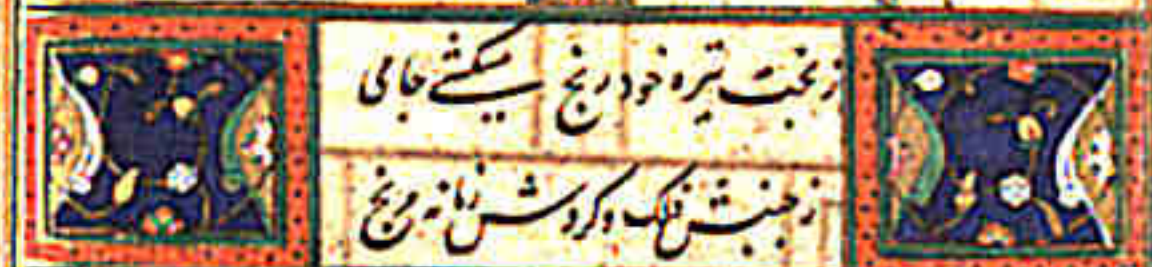 ز بخت تیره خود رنج میکشی جامی
ز جنبش فلک و گردش زمانه مرنج